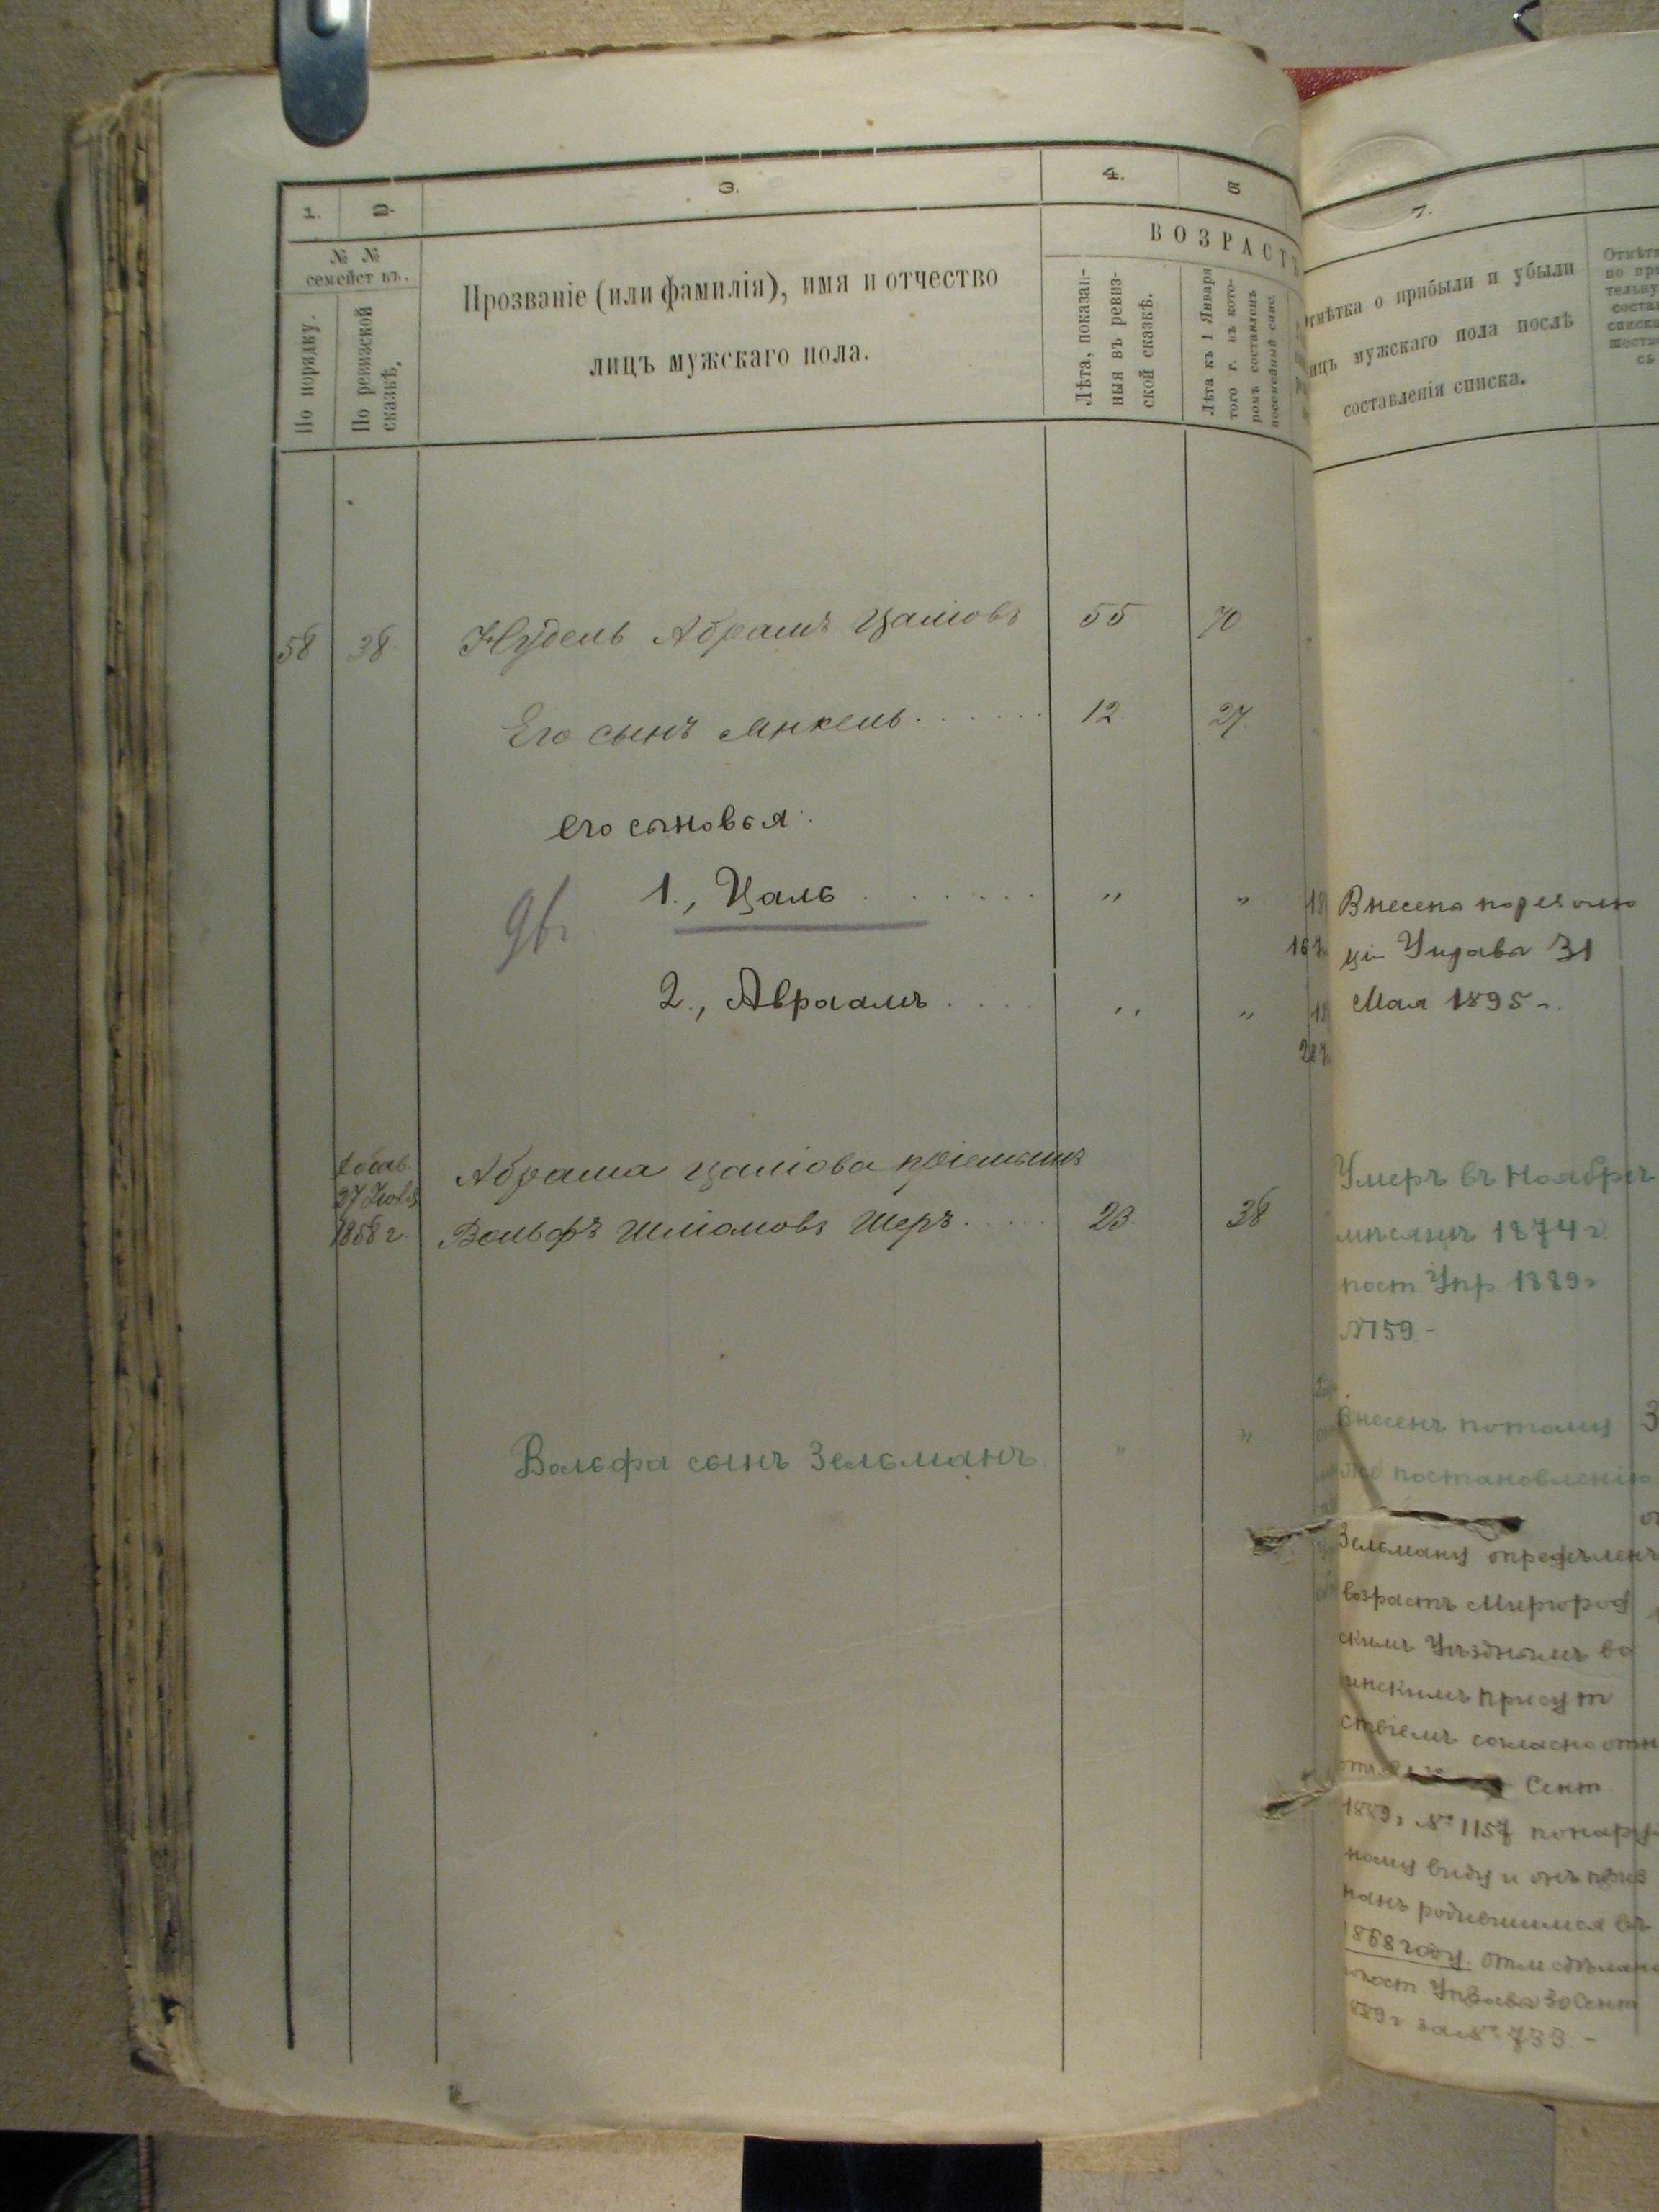 1.
2.
3.
4.
5
7.
№ №
семейст въ.
По порядку.
По ревизской
сказкѣ.
Прозваніе (или фамилія), имя и отчество
лицъ мужскаго пола.
ВОЗРАСТЪ
Лѣта, показан-
ныя въ ревиз-
ской сказкѣ.
Лѣта къ 1 Января
того г. въ кото-
ромъ составленъ
посемейный спис.
Отмѣтка о прибыли и убыли
лицъ мужскаго пола послѣ
составленія списка.
58 38 Нудель Абрамъ Цаліовъ 55 70
Его сынъ Янкель 12. 27.
его сыновья:
1., Цаль " "
Внесена по резолю
ціи Управа 31
2., Авраамъ " "
Мая 1895 г.
Добав.
27 Іюля
1858 г.
Абрама Цаліова пріемышъ
Вольфъ Шліомовъ Шеръ 23. 38
Умеръ въ Ноябрѣ
мѣсяцѣ 1874 г.
пост Упр. 1889 г
№159 -
Вольфа сынъ Зельманъ " "
Внесенъ по тому
же постановленію
Зельману опредѣленъ
возрастъ Миргород
скимъ Уѣзднымъ во
инскимъ присут
ствіемъ согласно отн
Сент
1889 г № 1157 по наруж
ному виду и онъ приз
нанъ родившимся въ
1868 году. Отм сдѣлана
пост Управа 30 Сент
1889 г за № 733. -